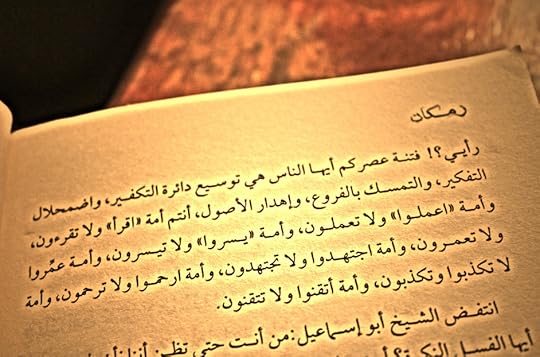 رمكان
رأيي؟! فتنة عصركم أيها الناس هي توسيع دائرة التكفير، واضمحلال
التفكير، والتمسك بالفروع، وإهدار الأصول، أنتم أمة «اقرأ» ولا تقرءون،
وأمة «اعملوا» ولا تعملون، وأمة «يسروا» ولا تيسرون، وأمة عمِّروا
ولا تعمرون، وأمة اجتهدوا ولا تجتهدون، وأمة ارحموا ولا ترحمون، وأمة
لا تكذبوا وتكذبون، وأمة أتقنوا ولا تتقنون.
انتفض الشيخ أبو إسماعيل: من أنت حتى تظن أننا
أيها الفسل النكرة؟